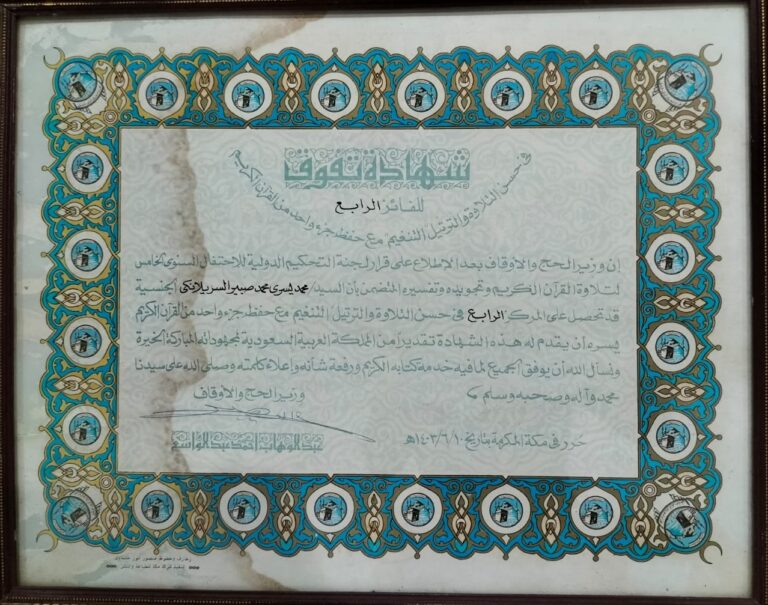 شهادة تفوق
في حسن التلاوة والترتيل "التنغيم" مع حفظ جزء واحد من القرآن الكريم
للفائز الرابع
إن وزير الحج والأوقاف بعد الإطلاع على قرار لجنة التحكيم الدولية للاحتفال السنوي الخامس
لتلاوة القرآن الكريم وتجويده وتفسيره المتضمن بأن السيد/ محمد يسري محمد صبير السريلانكي الجنسية
قد تحصل على المركز الرابع في حسن التلاوة والترتيل "التنغيم" مع حفظ جزء واحد من القرآن الكريم
يسره أن يقدم له هذه الشهادة تقديرا من المملكة العربية السعودية لمجهوداته المباركة الخيرة
ونسأل الله أن يوفق الجميع لما فيه خدمة كتابه الكريم ورفعة شأنه وإعلاء كلمته وصلى الله على سيدنا
محمد وآله وصحبه وسلم
وزير الحج والأوقاف
عبد الوهاب أحمد عبد الواسع
حرر في مكة المكرمة بتاريخ ١٤٠٣/٦/١٠هـ